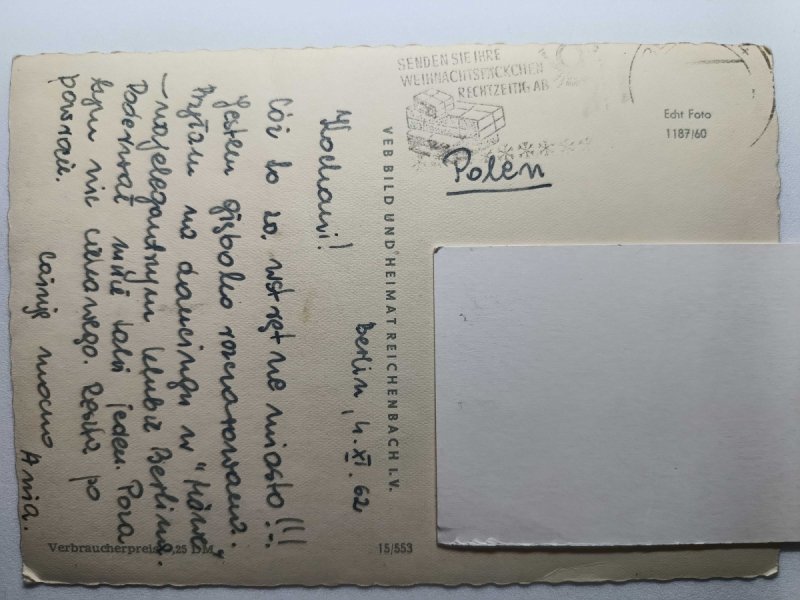 SENDEN SIE IHRE
WEIHNACHTSPÄCKCHEN
RECHTZEITIG AB
Echt Foto
1187/60
Polen
Berlin, 4. XI. 62
Kochani!
Cóż to za wstrętne miasto!!!
Jestem głęboko rozczarowana.
Byłam na dancingu w "Möwe"
– klubie Berlina.
Poderwał mnie taki jeden. Poza
tym nic ciekawego. Reszta po
powrocie.
Całuję mocno
Ania.
VEB BILD UND HEIMAT REICHENBACH I.V.
Verbraucherpreis 0,25 DM
15/553